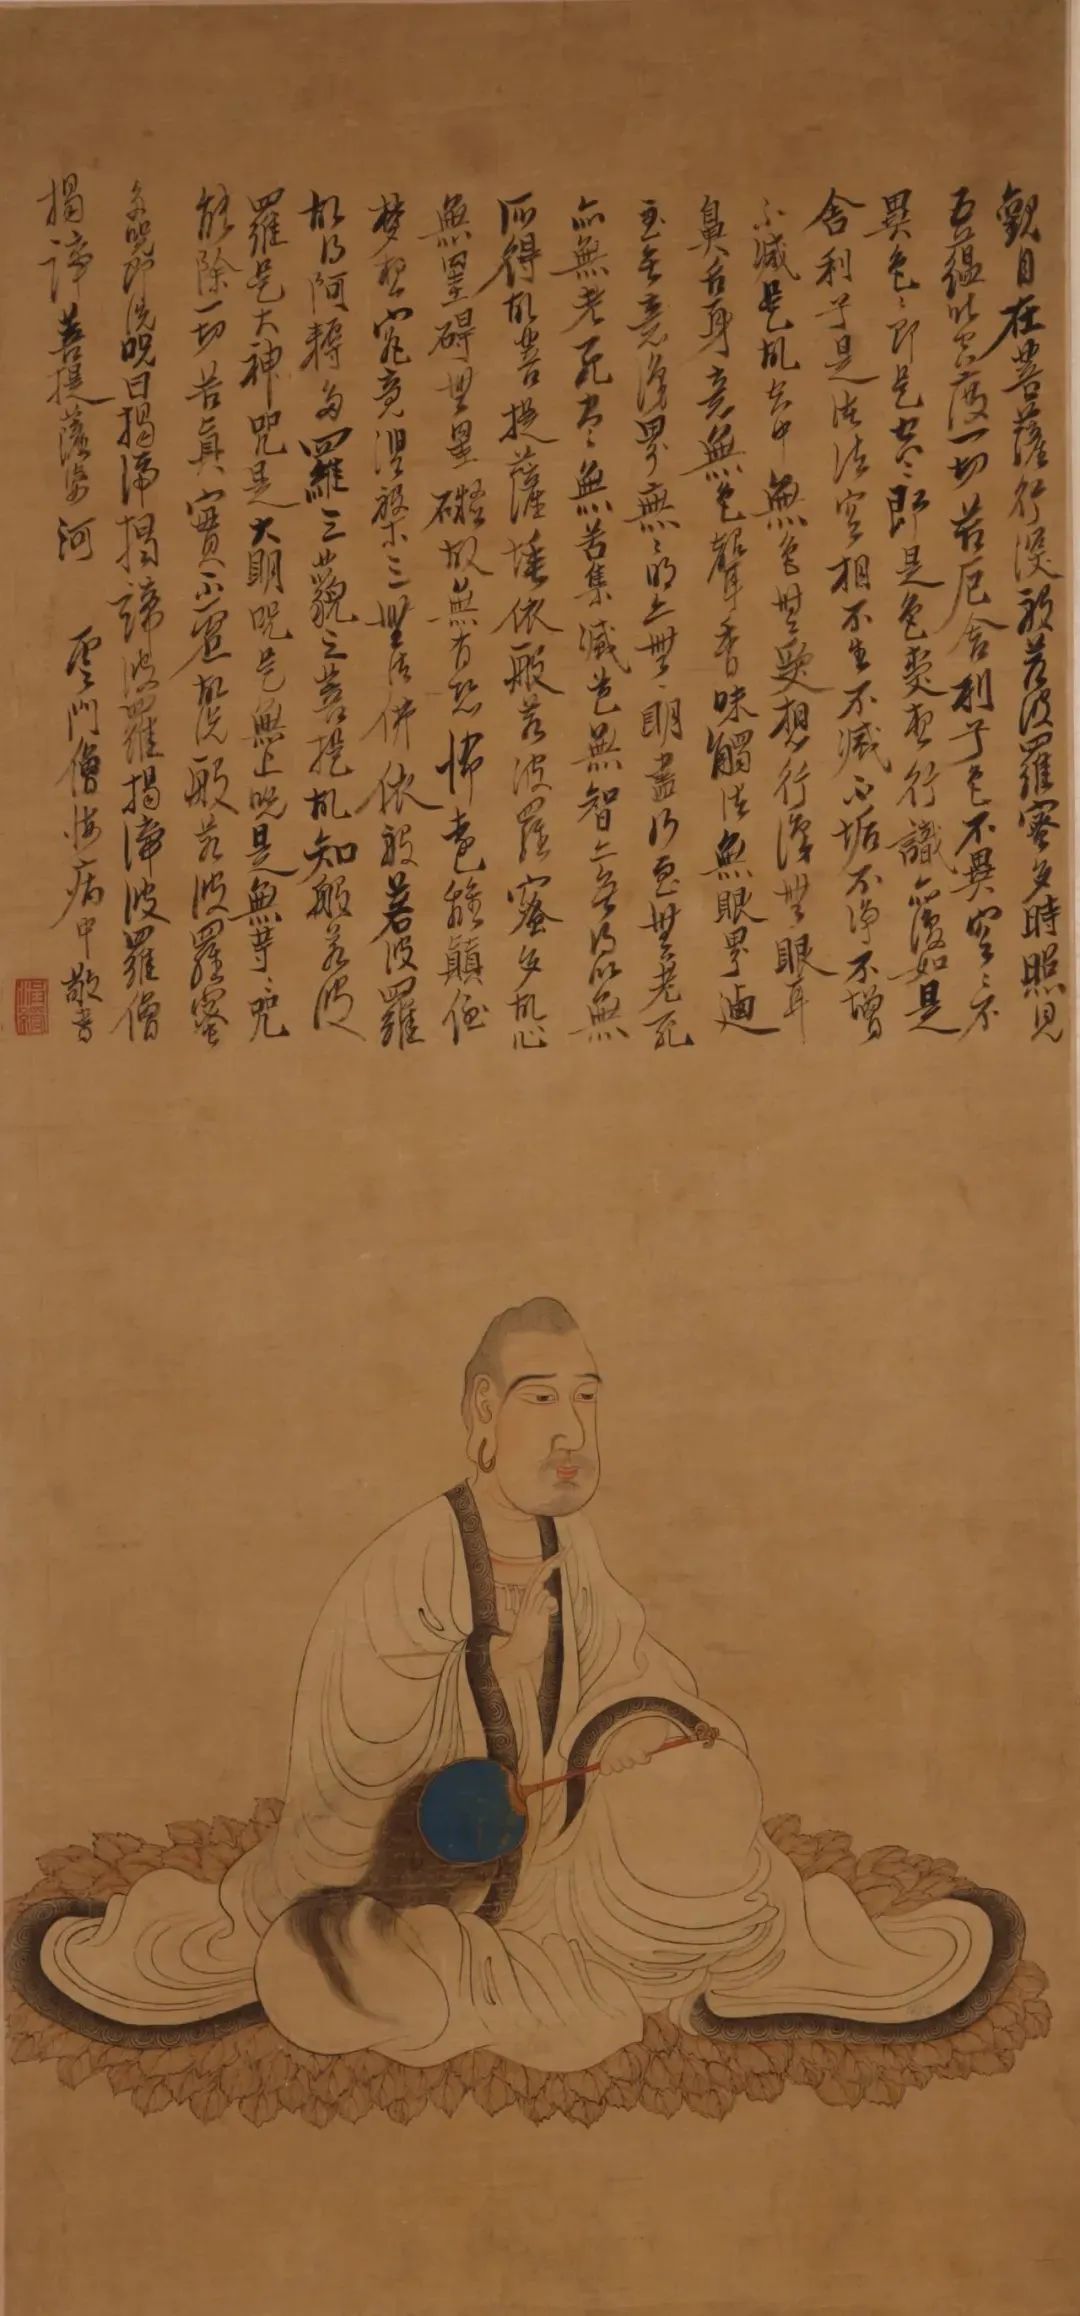 觀自在菩薩行深般若波羅蜜多時照見
五蘊皆空度一切苦厄舍利子色不異空〻不
異色〻即是空〻即是色受想行識亦復如是
舍利子是諸法空相不生不滅不垢不淨不增
不減是故空中無色無受想行識無眼耳
鼻舌身意無色聲香味觸法無眼界廼
至無意識界無〻明亦無〻明盡乃至無老死
亦無老死盡無苦集滅道無智亦無得以無
所得故菩提薩埵依般若波羅蜜多故心
無罣碍無罣礙故無有恐怖遠離顛倒
夢想究竟涅槃三世諸佛依般若波羅
故得阿耨多羅三藐三菩提故知般若波
羅是大神咒是大明咒是無上咒是無等〻咒
能除一切苦真實不虛故說般若波羅蜜
多咒即說咒曰揭諦揭諦波羅揭諦波羅僧
揭諦菩提薩婆河 雲門僧悔病中敬書